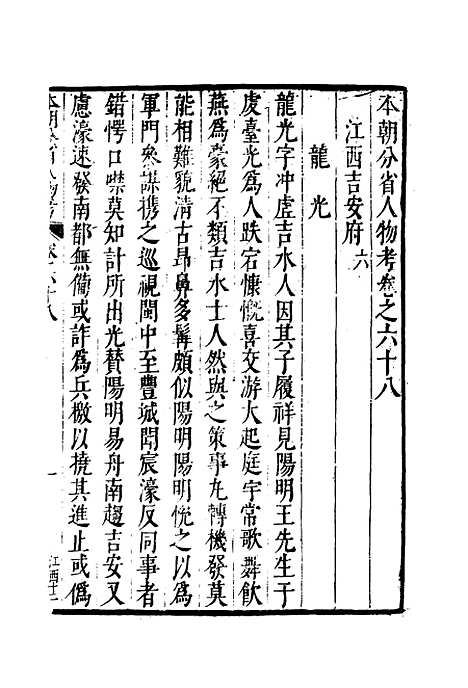 本朝分省人物考卷之六十八
江西吉安府六
龍光
龍光字冲虛吉水人因其子履祥見陽明王先生于
虔臺光爲人跌宕慷慨喜交游大起庭宇常歌舞飲
燕爲豪絕不類吉水士人然與之策事丸轉機發莫
能相難貌清古昻鼻多髯頗似陽明陽明悅之以爲
軍門參謀携之巡視閩中至豐城聞宸濠反同事者
錯愕口噤莫知計所出光贊陽明易舟南趨吉安又
慮濠速發南都無備或詐爲兵檄以撓其進止或僞
本朝分省人物考
卷六十八
一
江西十二